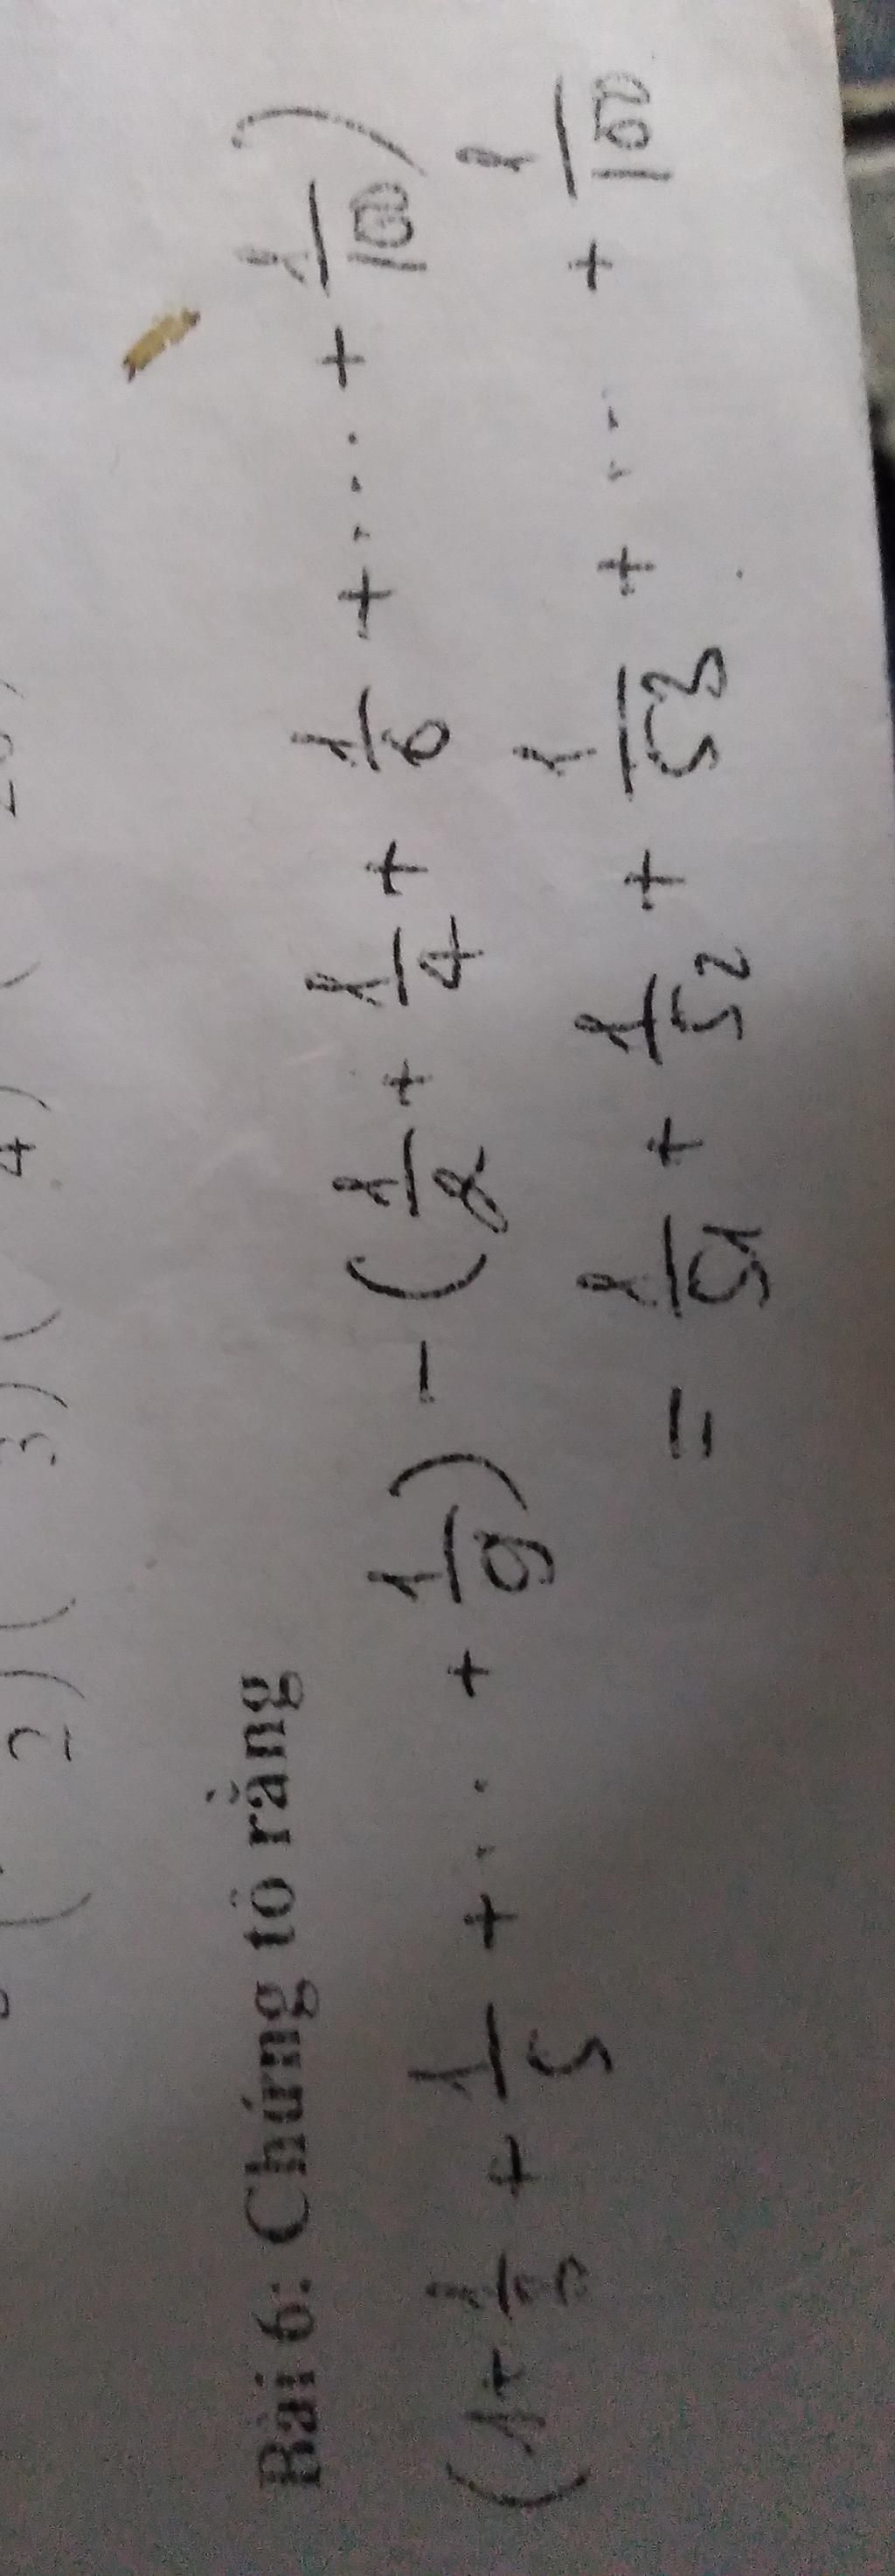 2) ( 3) ( 4) (
Bài 6: Chứng tỏ rằng
(1 + 1/3 + 1/5 + ... + 1/9) - (1/2 + 1/4 + 1/6 + .... + 1/100)
= 1/51 + 1/52 + 1/53 + .... + 1/100